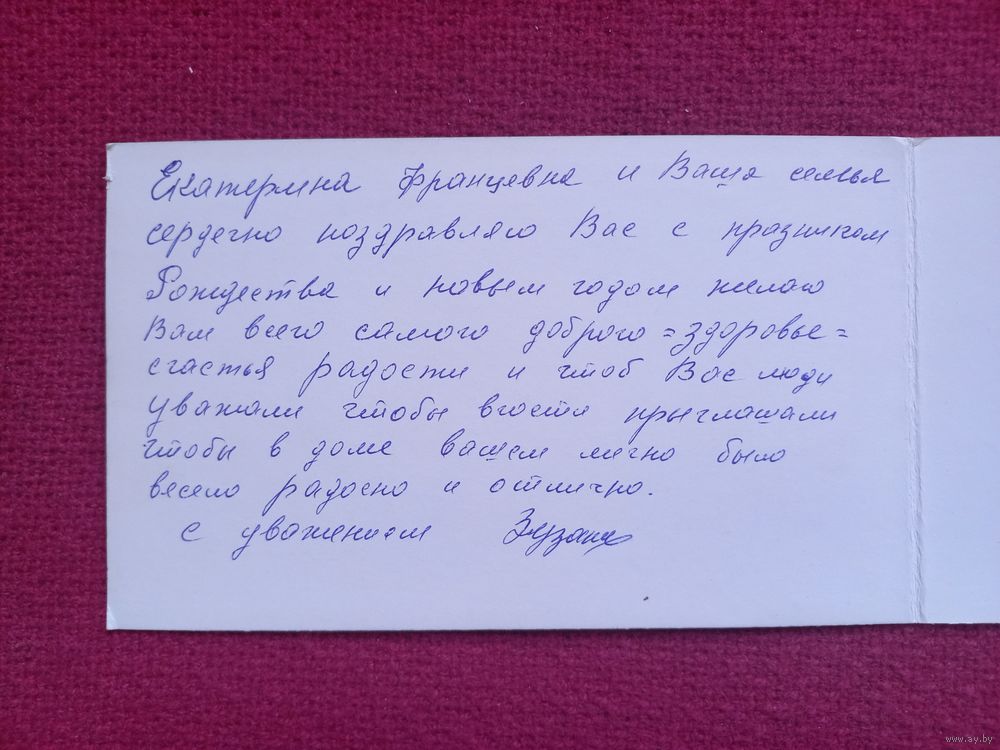 Екатерина Францевна и Ваша семья
сердечно поздравляю Вас с празником
Рождества и новым годом желаю
Вам всего самого доброго = здоровье =
счастья радости и чтоб Вас люди
уважали чтобы вгости прыглашали
чтобы в доме вашем лично было
весело радосно и отлично.
с уважением
www.ay.by